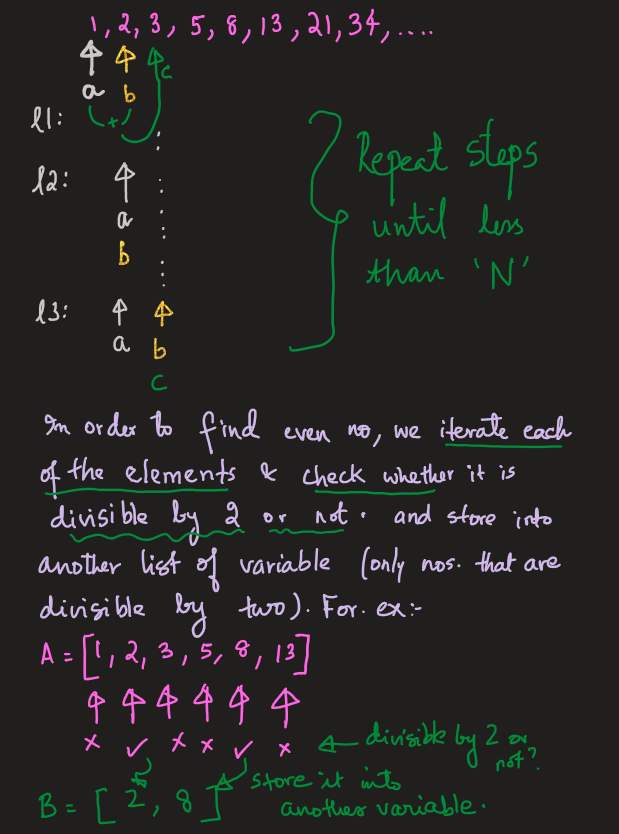 1, 2, 3, 5, 8, 13, 21, 34, ....
c
a b
l1: +
l2:
a
b
l3:
a b
c
Repeat steps
until less
than 'N'
In order to find even no, we iterate each
of the elements & check whether it is
divisible by 2 or not. and store into
another list of variable (only nos. that are
divisible by two). For. ex:-
A = [1, 2, 3, 5, 8, 13]
× ✓ × × ✓ × divisible by 2 or
not?
B = [2, 8] store it into
another variable.